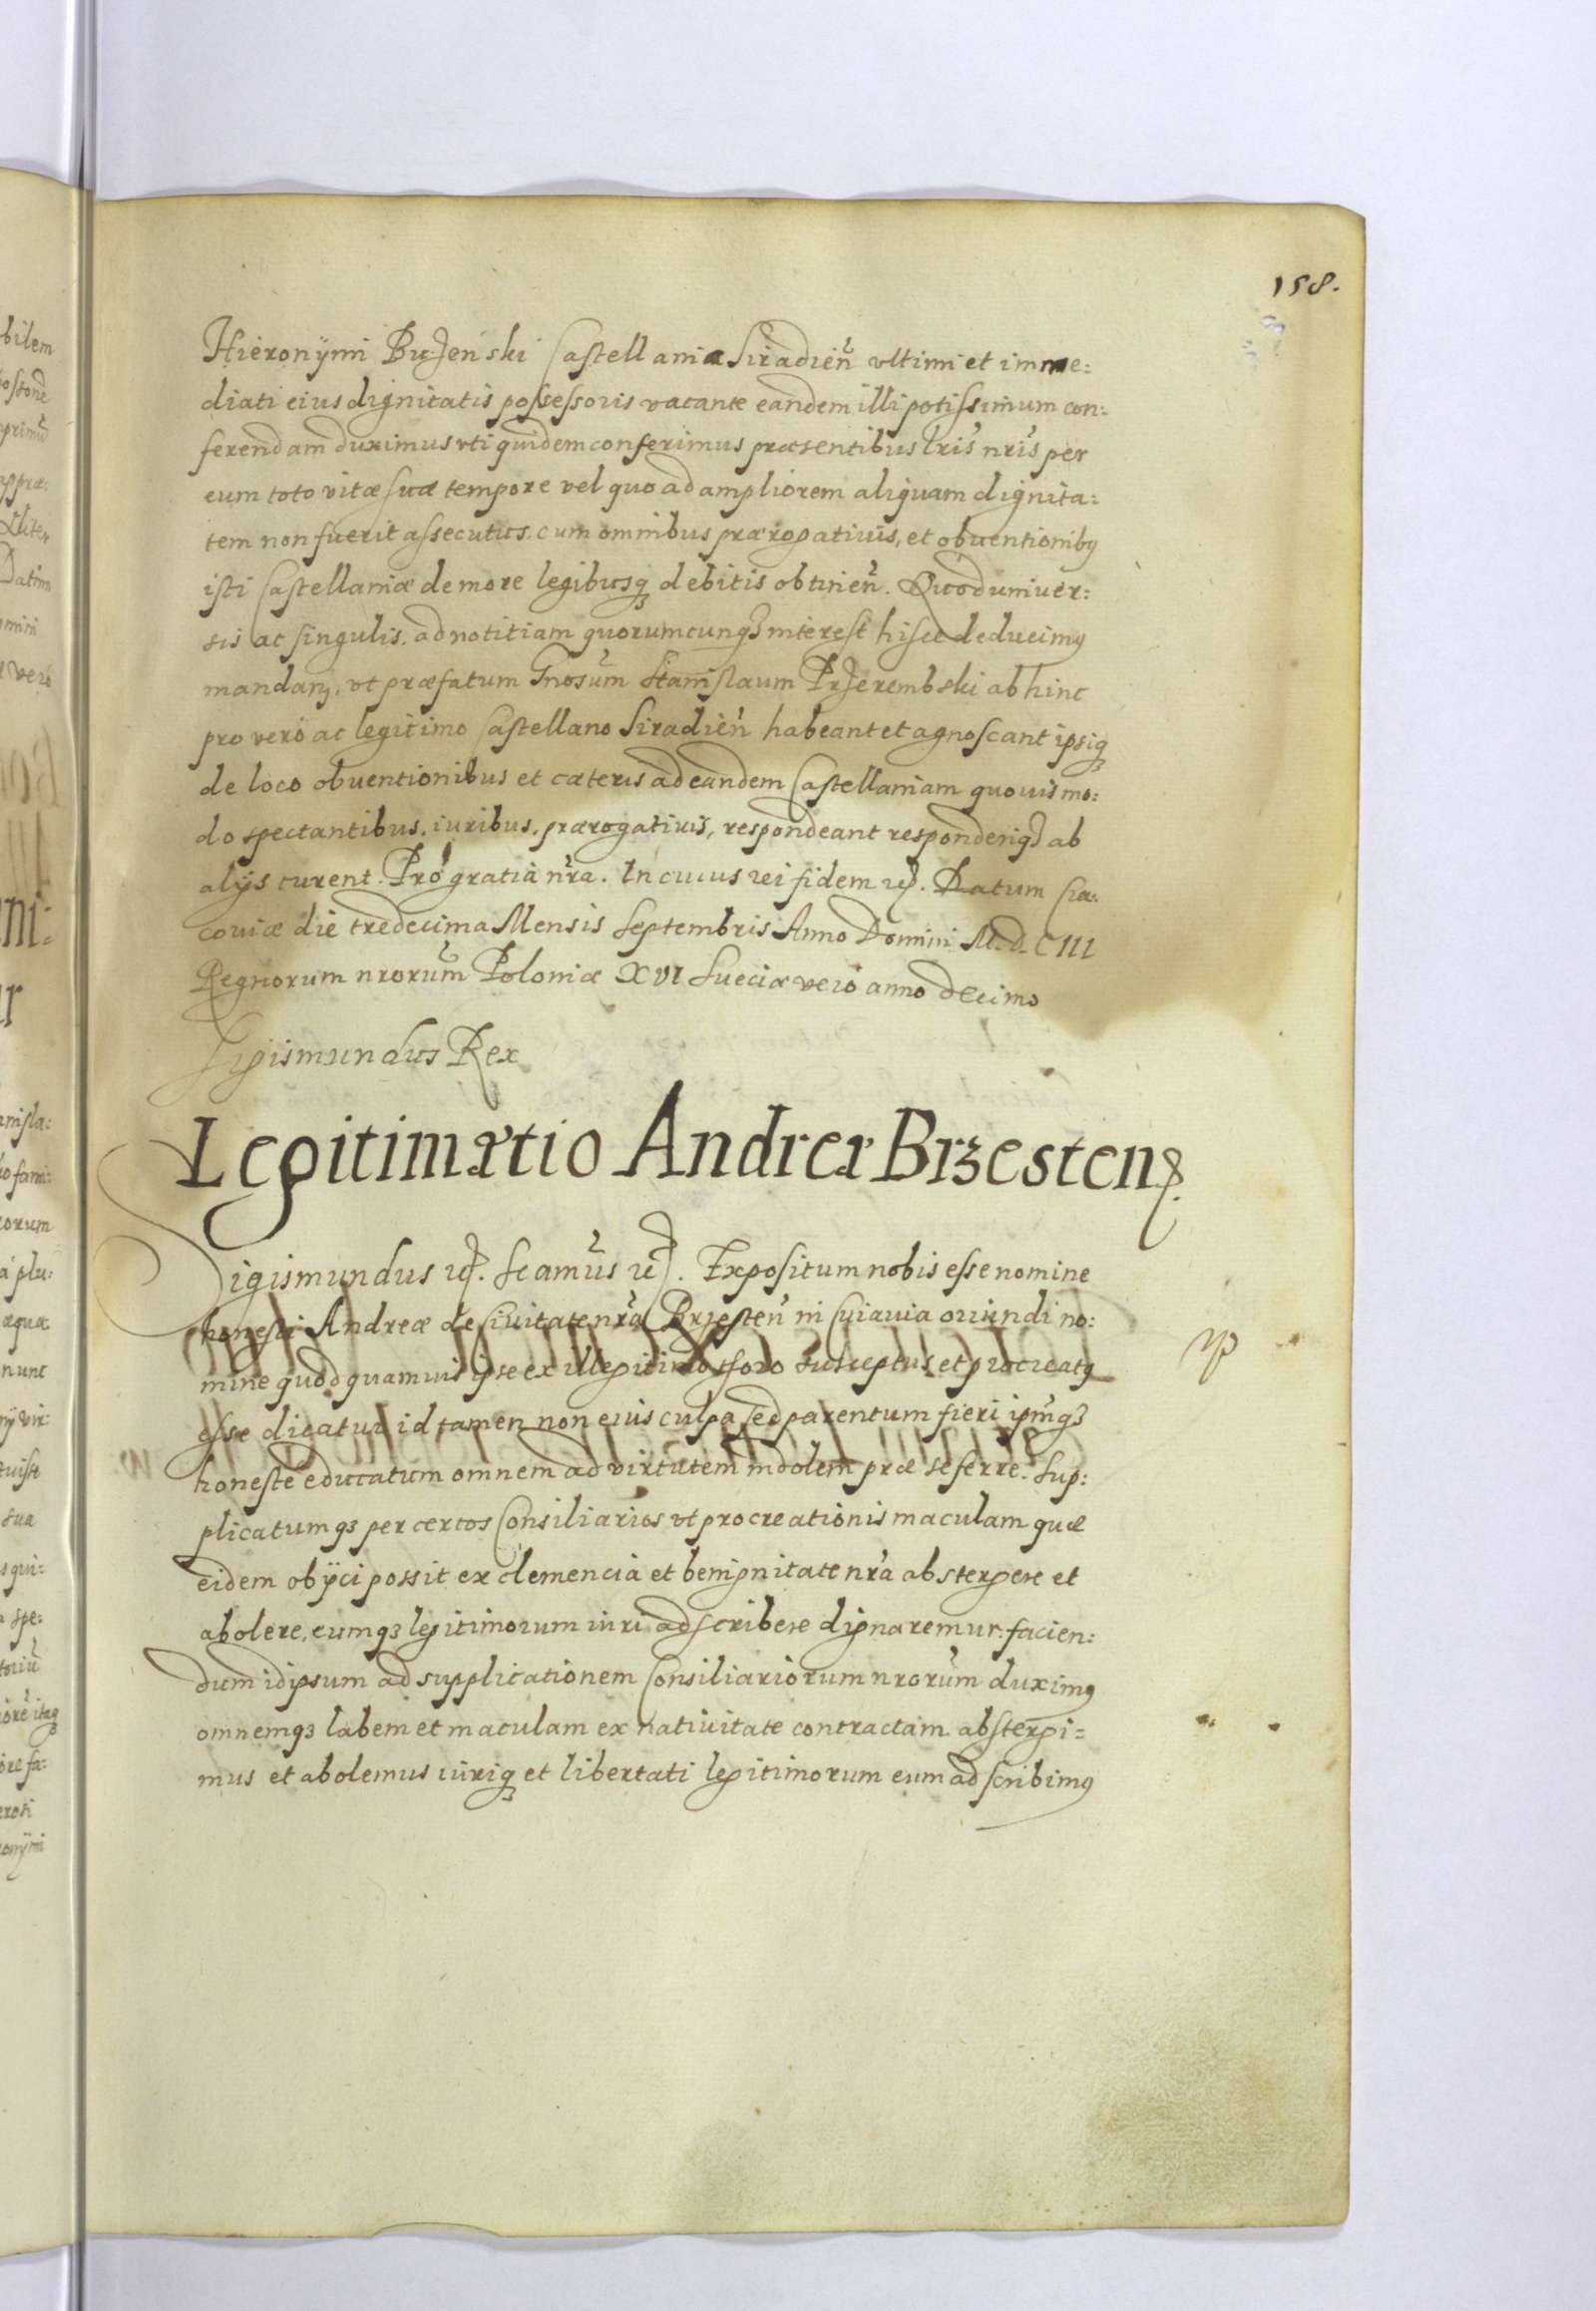 158.
Hieronÿmi Buzenski Castellania Siradien̄ vltimi et imme:
diati eius dignitatis possessoris vacante eandem illi potissimum con:
ferendam duximus vti quidem conferimus præsentibus lris nris per
eum toto vitæ suæ tempore vel quo ad ampliorem aliquam dignita:
tem non fuerit assecutus. cum omnibus prærogatiuis, et obuentionibꝯ
isti Castellaniæ de more legibusqꝫ debitis obtinen̄. Quod uniuer:
sis ac singulis. ad notitiam quorumcunqꝫ interest hisce deducimꝯ
mandan̄, vt præfatum Gnosum Stanislaum Przerembski ab hinc
pro vero ac legitimo Castellano Siradien̄ habeant et agnoscant ipsiqꝫ
de loco obuentionibus et cæteris ad eandem Castellaniam quouis mo:
do spectantibus. iuribus, prærogatiuis, respondeant responderiqꝫ ab
alÿs curent. Pro gratia nra. In cuius rei fidem etc. Datum Cra:
couiæ die tredecima Mensis Septembris Anno Domini M.D.CIII
Regnorum nrorum Poloniæ XVI Sueciæ vero anno decimo
Sigismundus Rex
Legitimatio Andreæ Brzesten̄.
Sigismundus etc. Scamus etc. Expositum nobis esse nomine
honesti Andreæ de Ciuitate nra Brzesten̄ in Cuiauia oriundi no:
mine quod quamuis ipse ex illegitimo thoro susceptus et procreatꝯ
esse dicatur id tamen non eius culpa sed parentum fieri ipmqꝫ
honeste educatum omnem ad virtutem indolem præ se ferre. Sup:
plicatumqꝫ per certos Consiliarios vt procreationis maculam quæ
eidem obÿci possit ex clemencia et benignitate nra abstergere et
abolere, eumqꝫ legitimorum iuri adscribere dignaremur: facien:
dum id ipsum ad supplicationem Consiliariorum nrorum duximꝯ
omnemqꝫ labem et maculam ex natiuitate contractam abstergi=
mus et abolemus iuriqꝫ et libertati legitimorum eum adscribimꝯ